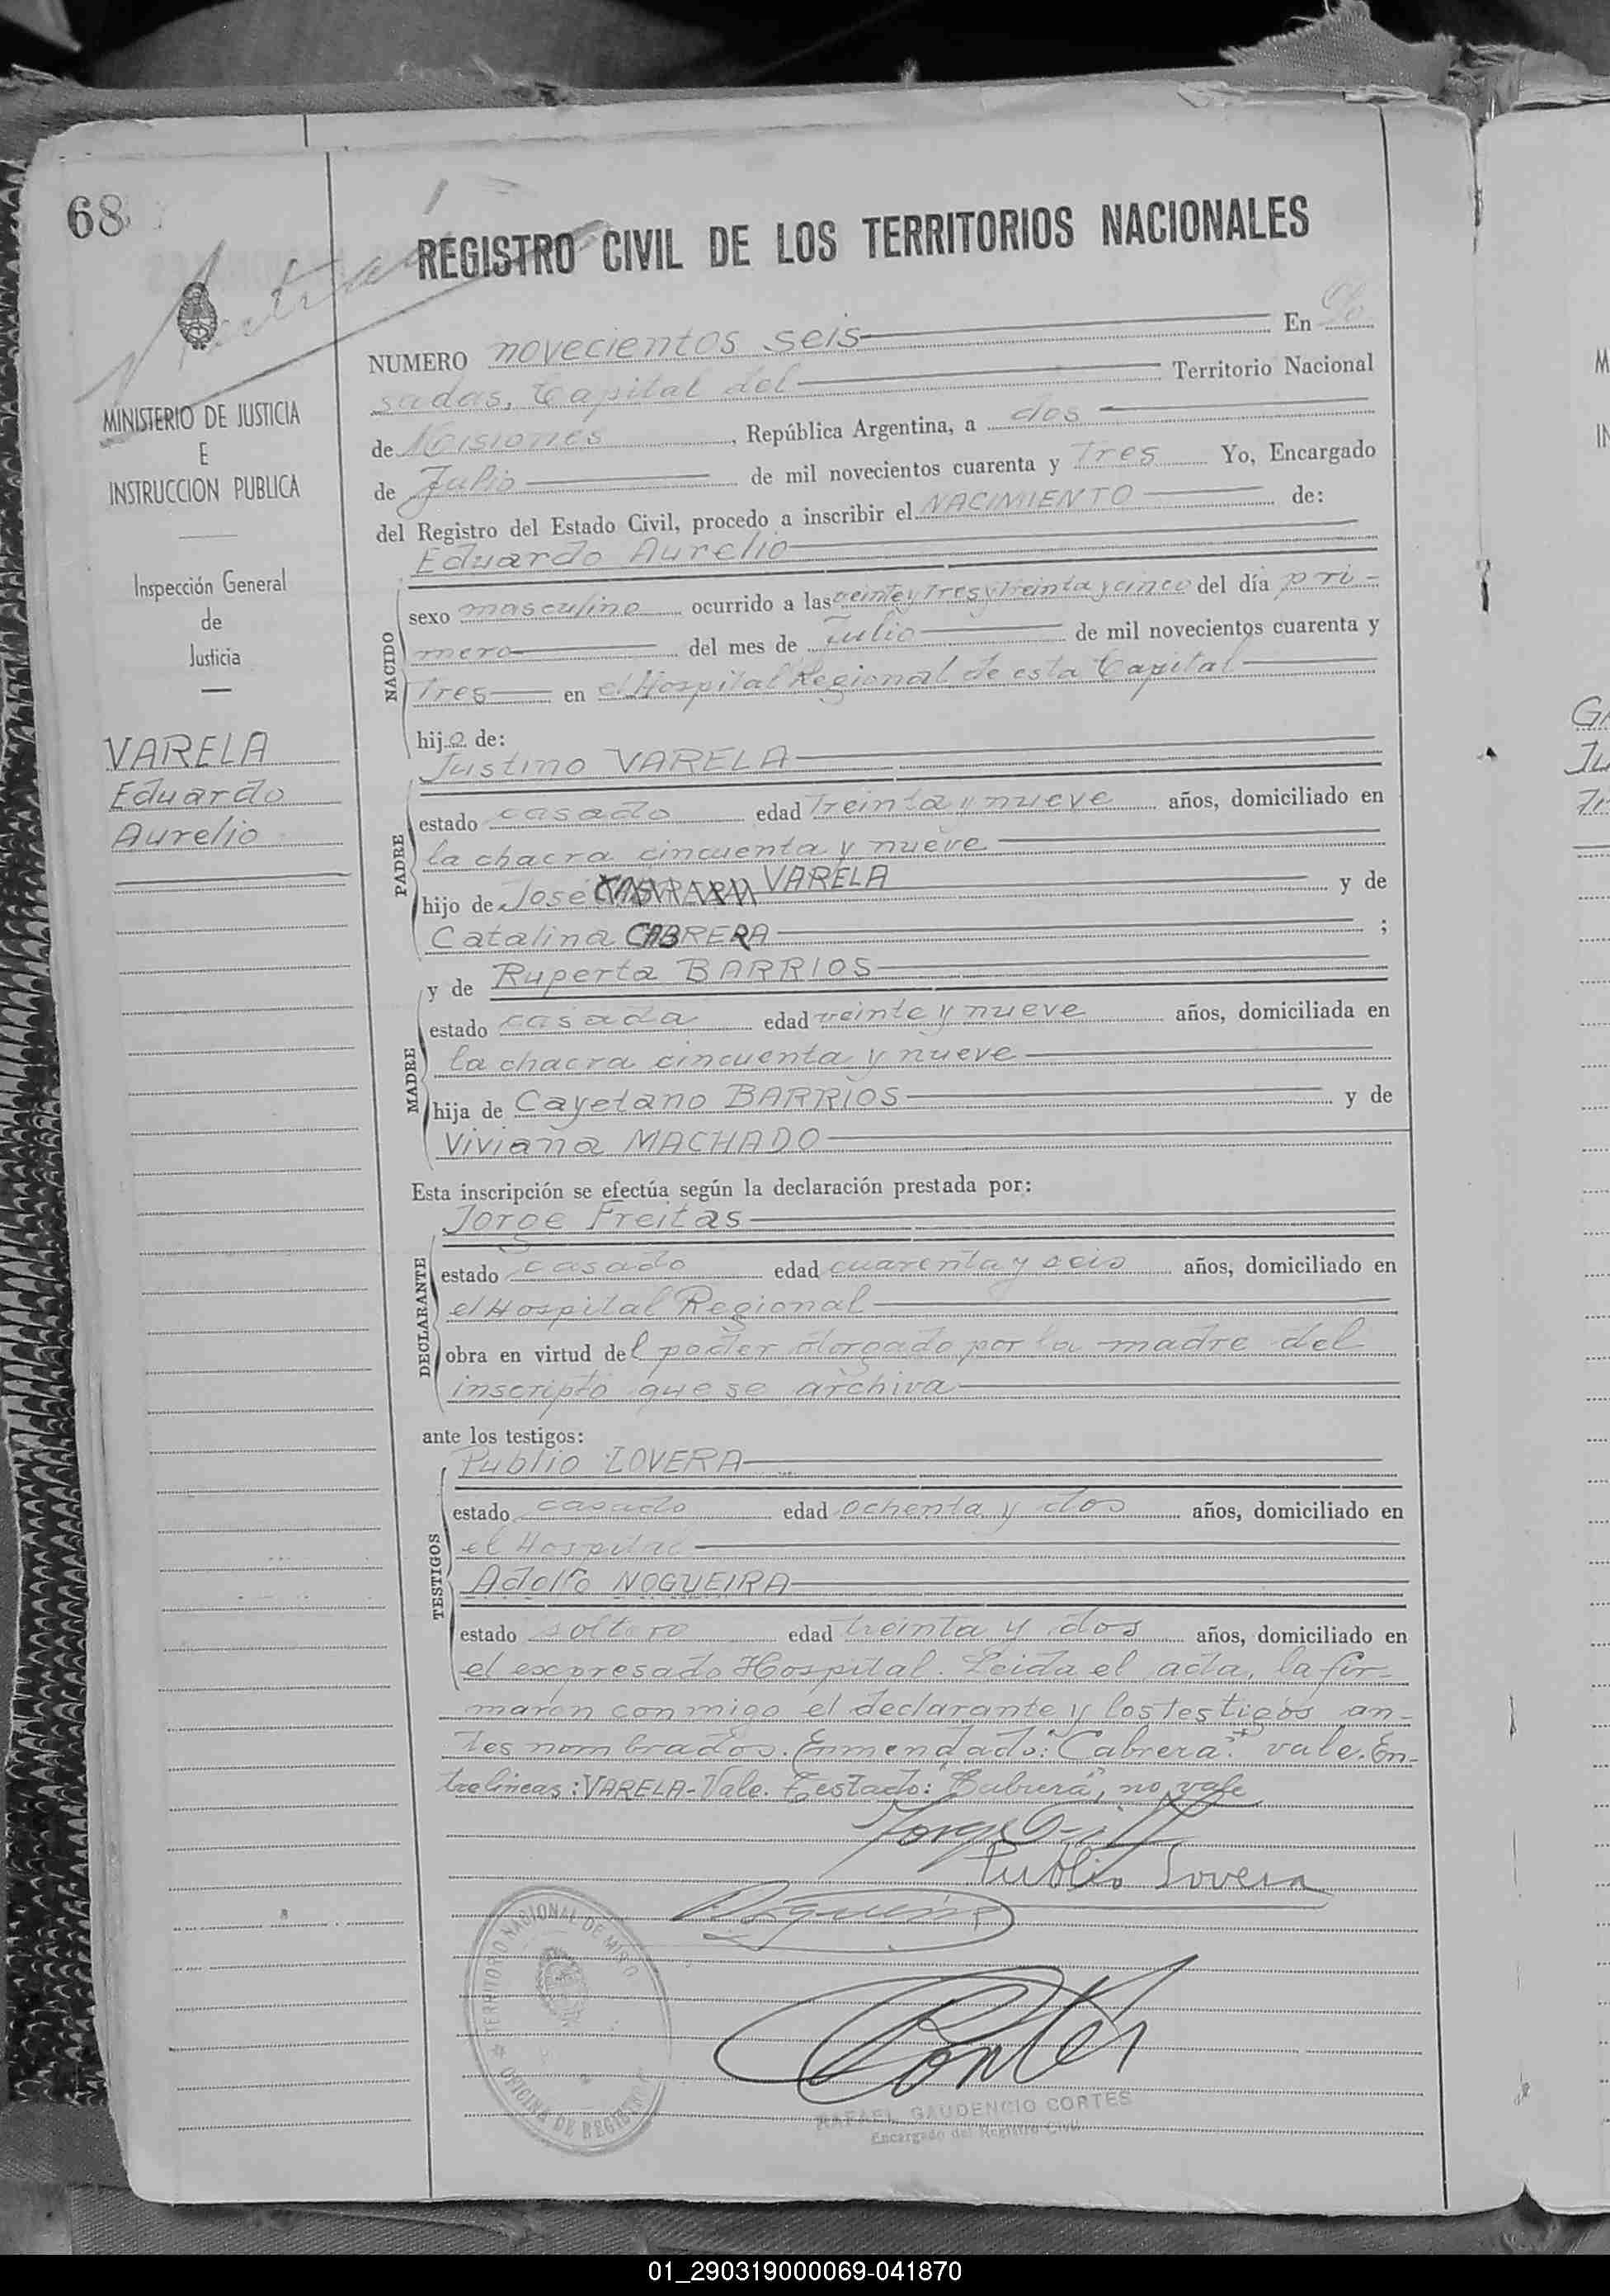 68
REGISTRO CIVIL DE LOS TERRITORIOS NACIONALES
MINISTERIO DE JUSTICIA
E
INSTRUCCION PUBLICA
Inspección General
de
Justicia
VARELA
Eduardo
Aurelio
NUMERO novecientos seis En Po
sadas, Capital del Territorio Nacional
de Misiones, República Argentina, a dos
de Julio de mil novecientos cuarenta y Tres Yo, Encargado
del Registro del Estado Civil, procedo a inscribir el NACIMIENTO de:
NACIDO
Eduardo Aurelio
sexo masculino ocurrido a las veinte y Tres y treinta y cinco del día pri-
mero del mes de Julio de mil novecientos cuarenta y
Tres en el Hospital Regional de esta Capital
hijo de:
PADRE
Justino VARELA
estado casado edad Treinta y nueve años, domiciliado en
la chacra cincuenta y nueve
hijo de José VARELA y de
Catalina CABRERA ;
MADRE
y de Ruperta BARRIOS
estado casada edad veinte y nueve años, domiciliada en
la chacra cincuenta y nueve
hija de Cayetano BARRIOS y de
Viviana MACHADO
Esta inscripción se efectúa según la declaración prestada por:
DECLARANTE
Jorge Freitas
estado casado edad cuarenta y seis años, domiciliado en
el Hospital Regional
obra en virtud del poder otorgado por la madre del
inscripto que se archiva
ante los testigos:
TESTIGOS
Publio LOVERA
estado casado edad ochenta y dos años, domiciliado en
el Hospital
Adolfo NOGUEIRA
estado soltero edad treinta y dos años, domiciliado en
el expresado Hospital. Leida el acta, la fir-
maron conmigo el declarante y los testigos an-
tes nombrados. Enmendado: "Cabrera" vale. En-
trelineas: VARELA-Vale. Testado: "Cabrera", no vale
Publio Lovera
TERRITORIO NACIONAL DE MISIO
OFICINA DE REGISTR
Cortes
RAFAEL GAUDENCIO CORTES
Encargado del Registro Civil
01_290319000069-041870